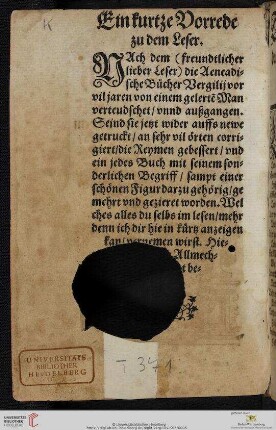 K
Ein kurtze Vorrede
zu dem Leser.
NAch dem (freundtlicher
lieber Leser) die Aeneadi-
sche Bücher Vergilij vor
vil jaren von einem gelertē Man
verteudschet / vnnd außgangen.
Seind sie jetzt wider auffs newe
getruckt / an sehr vil örten corri
giert / die Reymen gebessert / vnd
ein jedes Buch mit seinem son-
derlichen Begriff / sampt einer
schönen Figur darzu gehörig / ge
mehrt vnd gezieret worden. Wel
ches alles du selbs im lesen / mehr
denn ich dir hie in kürtz anzeigen
kan / vernemen wirst. Hie-
Allmech-
be-
UNIVERSITÄTS
BIBLIOTHEK
HEIDELBERG
T 371
UNIVERSITÄTS-
BIBLIOTHEK
HEIDELBERG
© Universitätsbibliothek Heidelberg